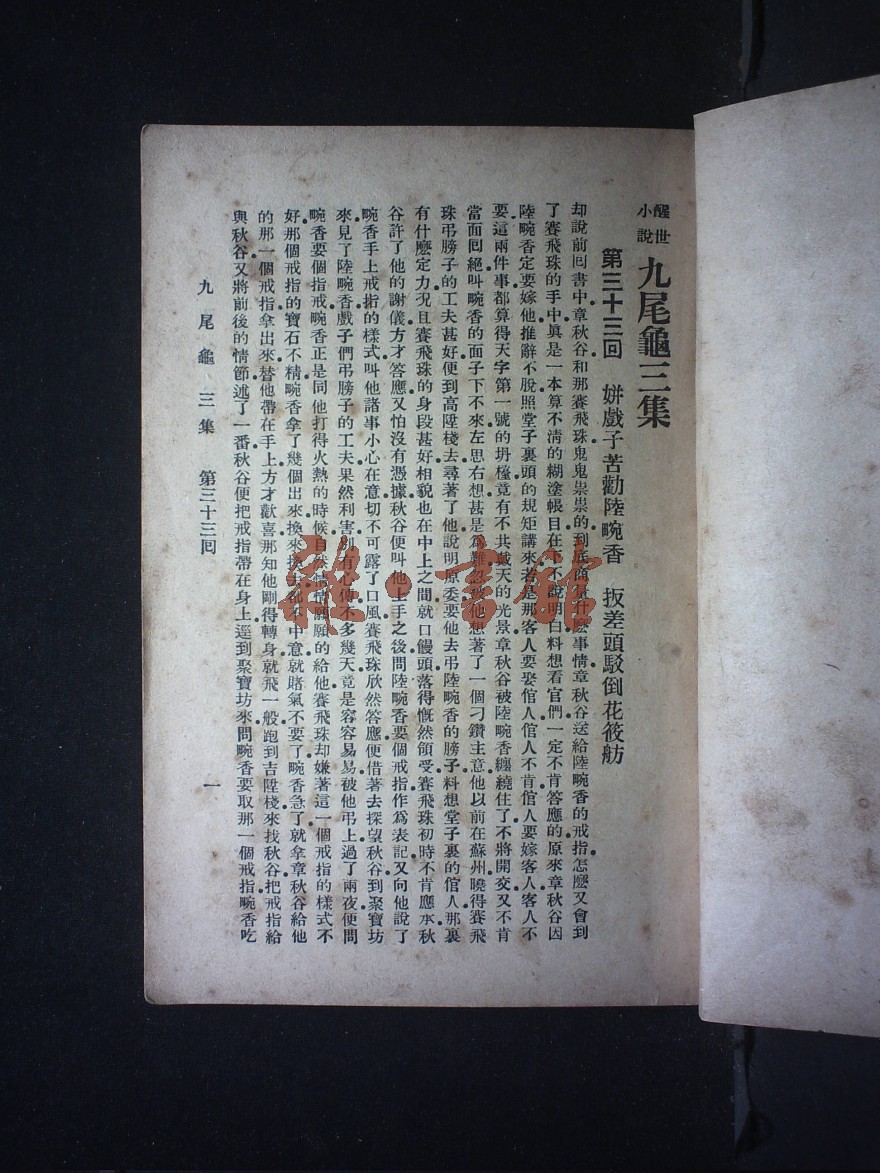 醒世小說 九尾龜三集
第三十三回 姘戲子苦勸陸畹香 扳差頭駁倒花筱舫
却說前回書中章秋谷和那賽飛珠鬼鬼祟祟的到底商量什麽事情章秋谷送給陸畹香的戒指怎麽又會到
了賽飛珠的手中眞是一本算不清的糊塗帳目在下不說明白料想看官們一定不肯答應的原來章秋谷因
陸畹香定要嫁他推辭不脫照堂子裏頭的規矩講來若是那客人要娶倌人倌人不肯倌人要嫁客人客人不
要這兩件事都算得天字第一號的坍檯竟有不共戴天的光景章秋谷被陸畹香纏繞住了不將開交又不肯
當面回絕叫畹香的面子下不來左思右想甚是爲難忽被他想著了一個刁鑽主意他以前在蘇州曉得賽飛
珠弔膀子的工夫甚好便到高陞棧去尋著了他說明原委要他去弔陸畹香的膀子料想堂子裏的倌人那裏
有什麽定力况且賽飛珠的身段甚好相貌也在中上之間就口饅頭落得慨然領受賽飛珠初時不肯應承秋
谷許了他的謝儀方才答應又怕沒有憑據秋谷便叫他上手之後問陸畹香要個戒指作爲表記又向他說了
畹香手上戒指的樣式叫他諸事小心在意切不可露了口風賽飛珠欣然答應便借著去探望秋谷到聚寶坊
來見了陸畹香戲子們弔膀子的工夫果然利害別有心傳不多幾天竟是容容易易被他弔上過了兩夜便問
畹香要個指戒畹香正是同他打得火熱的時候自然情情願願的給他賽飛珠却嫌著這一個戒指的樣式不
好那個戒指的寶石不精畹香拿了幾個出來換來換去都不中意就賭氣不要了畹香急了就拿章秋谷給他
的那一個戒指拿出來替他帶在手上方才歡喜那知他剛得轉身就飛一般跑到吉陞棧來找秋谷把戒指給
與秋谷又將前後的情節述了一番秋谷便把戒指帶在身上逕到聚寶坊來問畹香要取那一個戒指畹香吃
九尾龜三集 第三十三回 一
雅書館